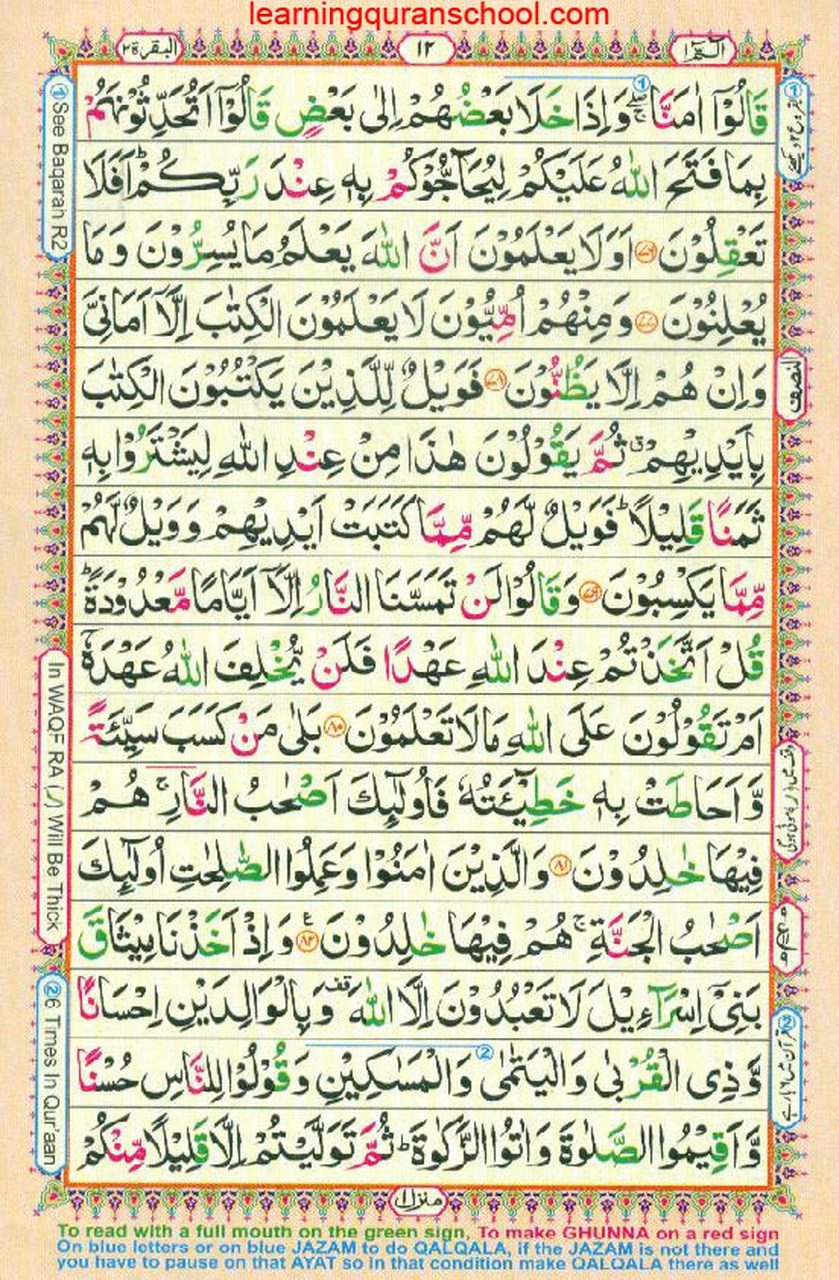 learningquranschool.com
الٓمّٓ ١
١٢
البقرة ٢
قَالُوْۤا اٰمَنَّا ۖۚ وَاِذَا خَلَا بَعْضُهُمْ اِلٰى بَعْضٍ قَالُوْۤا اَتُحَدِّثُوْنَهُمْ
بِمَا فَتَحَ اللّٰهُ عَلَيْكُمْ لِيُحَآجُّوْكُمْ بِهٖ عِنْدَ رَبِّكُمْ ؕ اَفَلَا
تَعْقِلُوْنَ ﴿۷۶﴾ اَوَلَا يَعْلَمُوْنَ اَنَّ اللّٰهَ يَعْلَمُ مَا يُسِرُّوْنَ وَمَا
يُعْلِنُوْنَ ﴿۷۷﴾ وَمِنْهُمْ اُمِّيُّوْنَ لَا يَعْلَمُوْنَ الْكِتٰبَ اِلَّاۤ اَمَانِىَّ
وَاِنْ هُمْ اِلَّا يَظُنُّوْنَ ﴿۷۸﴾ فَوَيْلٌ لِّلَّذِيْنَ يَكْتُبُوْنَ الْكِتٰبَ
بِاَيْدِيْهِمْ ق ثُمَّ يَقُوْلُوْنَ هٰذَا مِنْ عِنْدِ اللّٰهِ لِيَشْتَرُوْا بِهٖ
ثَمَنًا قَلِيْلًا ؕ فَوَيْلٌ لَّهُمْ مِّمَّا كَتَبَتْ اَيْدِيْهِمْ وَوَيْلٌ لَّهُمْ
مِّمَّا يَكْسِبُوْنَ ﴿۷۹﴾ وَقَالُوْا لَنْ تَمَسَّنَا النَّارُ اِلَّاۤ اَيَّامًا مَّعْدُوْدَةً ؕ
قُلْ اَتَّخَذْتُمْ عِنْدَ اللّٰهِ عَهْدًا فَلَنْ يُّخْلِفَ اللّٰهُ عَهْدَهٗۤ
اَمْ تَقُوْلُوْنَ عَلَى اللّٰهِ مَا لَا تَعْلَمُوْنَ ﴿۸۰﴾ بَلٰى مَنْ كَسَبَ سَيِّئَةً
وَّاَحَاطَتْ بِهٖ خَطِيْٓئَتُهٗ فَاُولٰٓئِكَ اَصْحٰبُ النَّارِ ۚ هُمْ
فِيْهَا خٰلِدُوْنَ ﴿۸۱﴾ وَالَّذِيْنَ اٰمَنُوْا وَعَمِلُوا الصّٰلِحٰتِ اُولٰٓئِكَ
اَصْحٰبُ الْجَنَّةِ ۚ هُمْ فِيْهَا خٰلِدُوْنَ ﴿۸۲﴾ ع وَاِذْ اَخَذْنَا مِيْثَاقَ
بَنِىْٓ اِسْرَآءِيْلَ لَا تَعْبُدُوْنَ اِلَّا اللّٰهَ قف وَبِالْوَالِدَيْنِ اِحْسَانًا
وَّذِى الْقُرْبٰى وَالْيَتٰمٰى وَالْمَسٰكِيْنِ وَقُوْلُوْا لِلنَّاسِ حُسْنًا
وَّاَقِيْمُوا الصَّلٰوةَ وَاٰتُوا الزَّكٰوةَ ؕ ثُمَّ تَوَلَّيْتُمْ اِلَّا قَلِيْلًا مِّنْكُمْ
منزل ١
① See Baqarah R2
In WAQF RA (ر) Will Be Thick
② 6 Times In Qur'aan
النصف
To read with a full mouth on the green sign, To make GHUNNA on a red sign
On blue letters or on blue JAZAM to do QALQALA, if the JAZAM is not there and
you have to pause on that AYAT so in that condition make QALQALA there as well